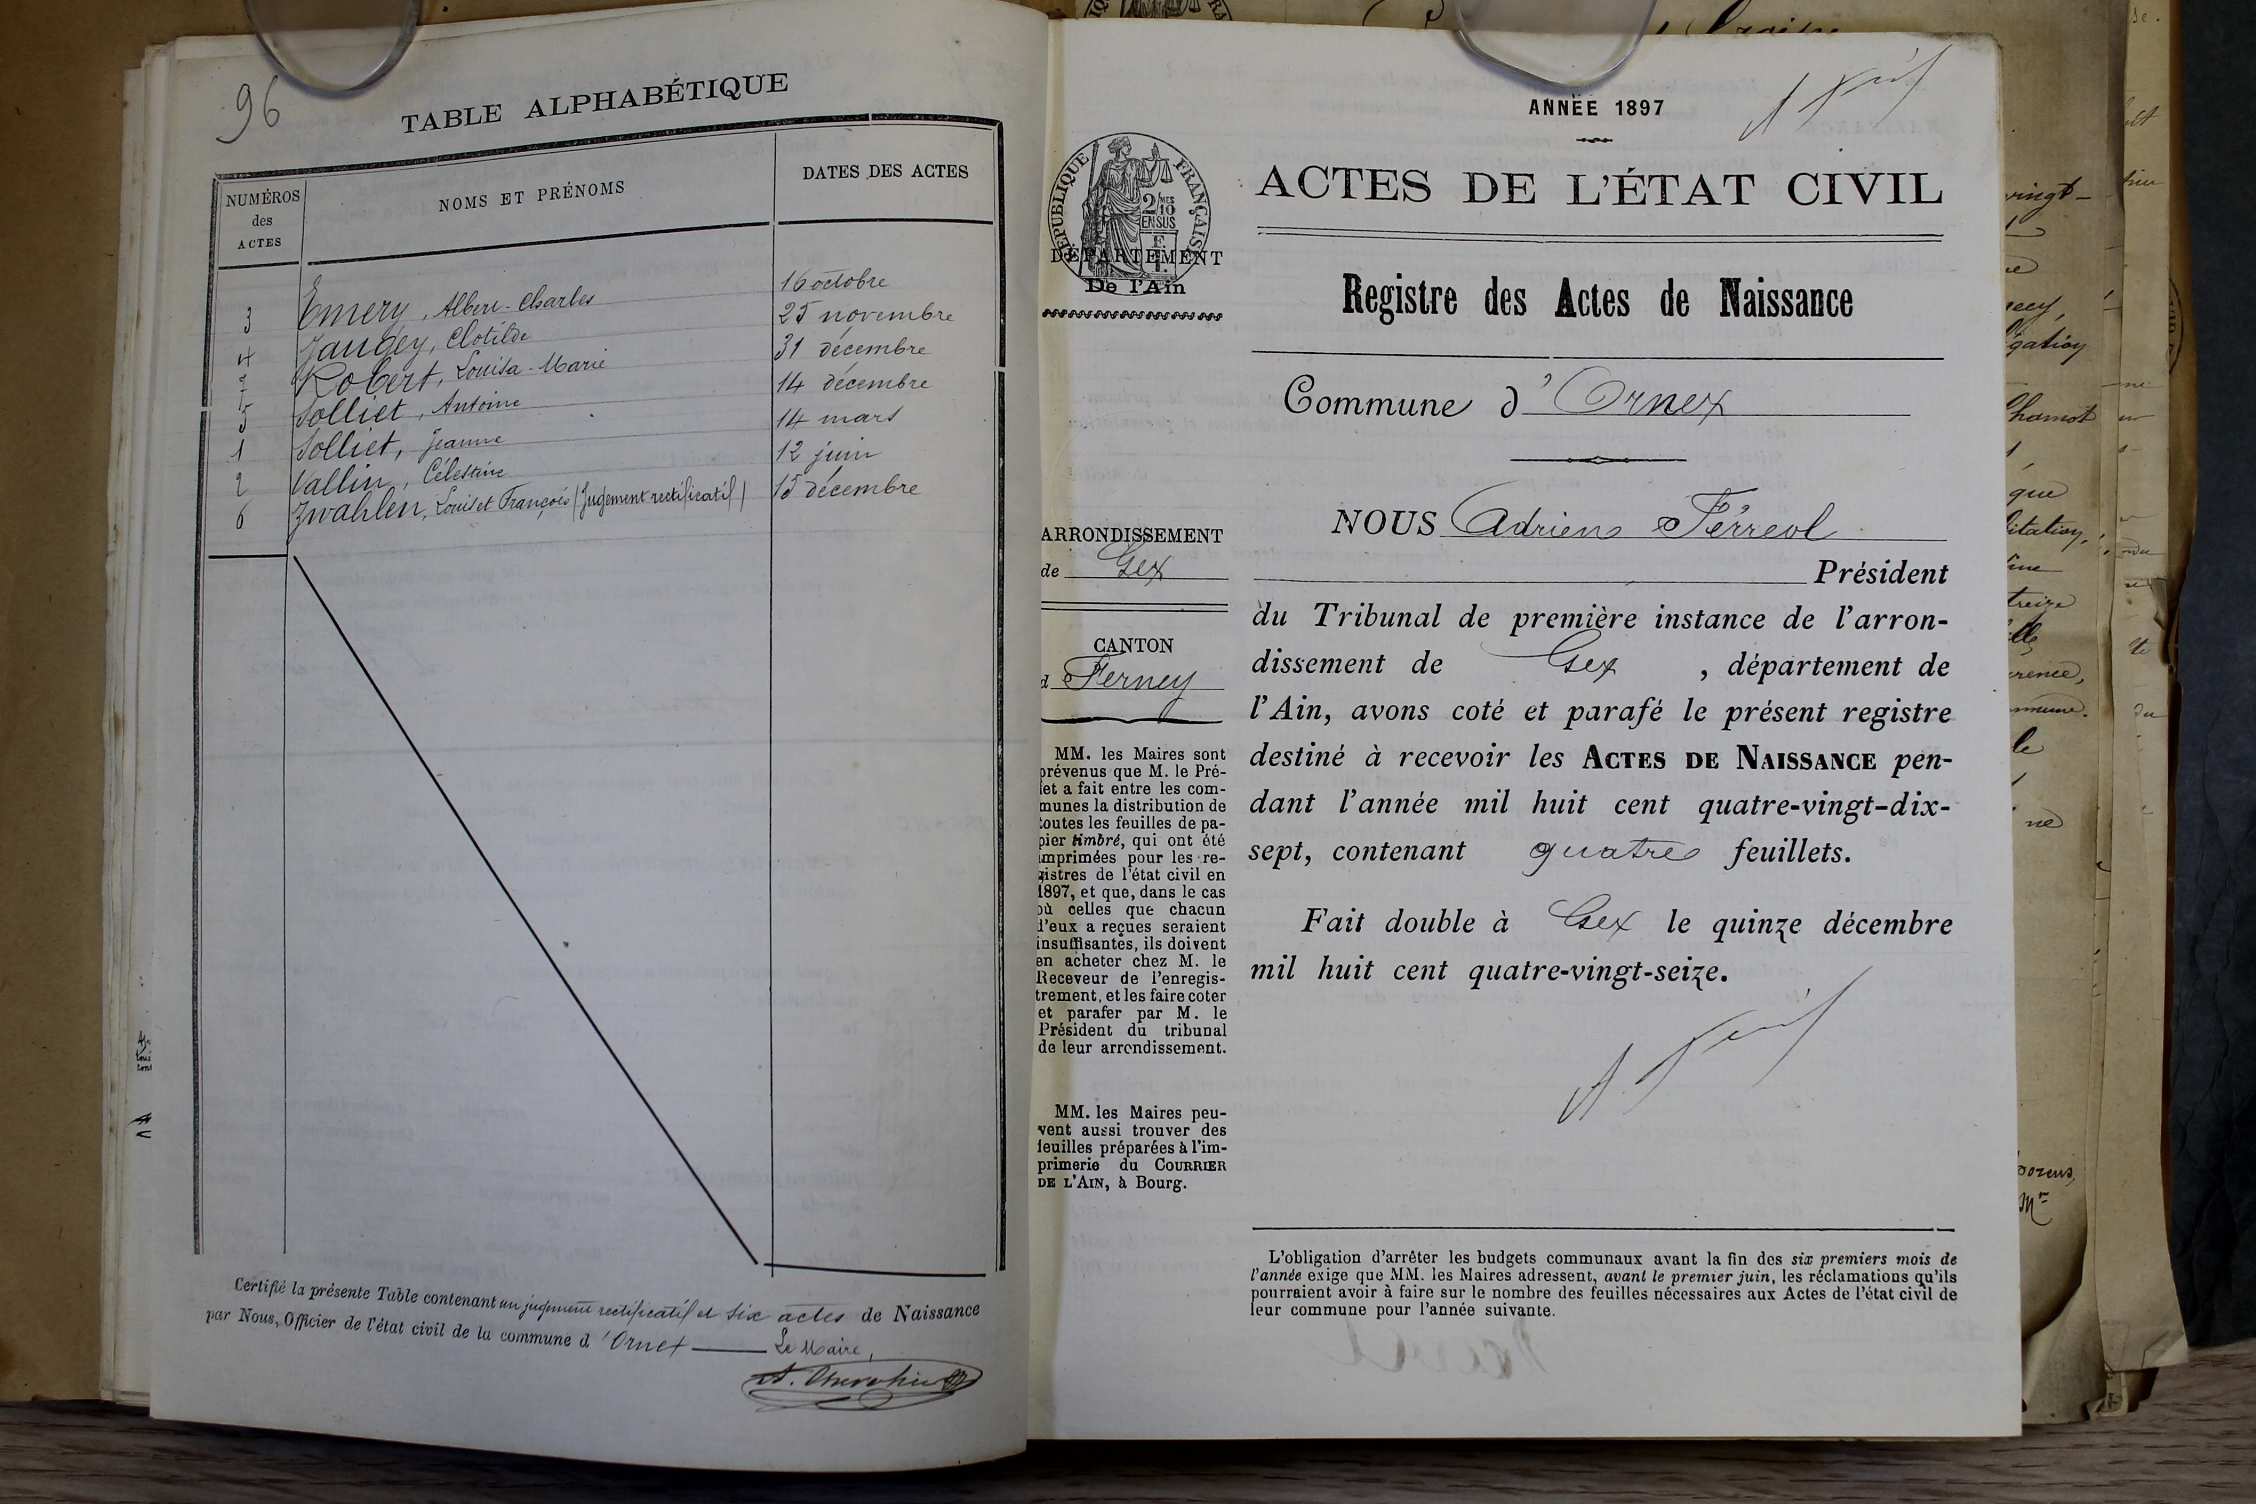 96
TABLE ALPHABÉTIQUE
NUMÉROS des ACTES
NOMS ET PRÉNOMS
DATES DES ACTES
3 Emery, Albert-Charles 16 octobre
4 Jaugey, Clotilde 25 novembre
7 Robert, Louisa-Marie 31 décembre
5 Solliet, Antoine 14 décembre
1 Solliet, Jeanne 14 mars
2 Vallin, Célestine 12 juin
6 Zwahlen, Louis et François (Jugement rectificatif) 15 décembre
Certifié la présente Table contenant un jugement rectificatif et six actes de Naissance
par Nous, Officier de l'état civil de la commune d'Ornex
Le Maire,
ANNÉE 1897
RÉPUBLIQUE FRANÇAISE
2/10 MES
EN SUS
DÉPARTEMENT
De l'Ain
ARRONDISSEMENT
de Gex
CANTON
d Ferney
MM. les Maires sont
prévenus que M. le Pré-
fet a fait entre les com-
munes la distribution de
toutes les feuilles de pa-
pier timbré, qui ont été
imprimées pour les re-
gistres de l'état civil en
1897, et que, dans le cas
où celles que chacun
d'eux a reçues seraient
insuffisantes, ils doivent
en acheter chez M. le
Receveur de l'enregis-
trement, et les faire coter
et parafer par M. le
Président du tribunal
de leur arrondissement.
MM. les Maires peu-
vent aussi trouver des
feuilles préparées à l'im-
primerie du COURRIER
DE L'AIN, à Bourg.
ACTES DE L'ÉTAT CIVIL
Registre des Actes de Naissance
Commune d'Ornex
NOUS Adrien Férreol
Président
du Tribunal de première instance de l'arron-
dissement de Gex, département de
l'Ain, avons coté et parafé le présent registre
destiné à recevoir les ACTES DE NAISSANCE pen-
dant l'année mil huit cent quatre-vingt-dix-
sept, contenant quatre feuillets.
Fait double à Gex le quinze décembre
mil huit cent quatre-vingt-seize.
L'obligation d'arrêter les budgets communaux avant la fin des six premiers mois de
l'année exige que MM. les Maires adressent, avant le premier juin, les réclamations qu'ils
pourraient avoir à faire sur le nombre des feuilles nécessaires aux Actes de l'état civil de
leur commune pour l'année suivante.